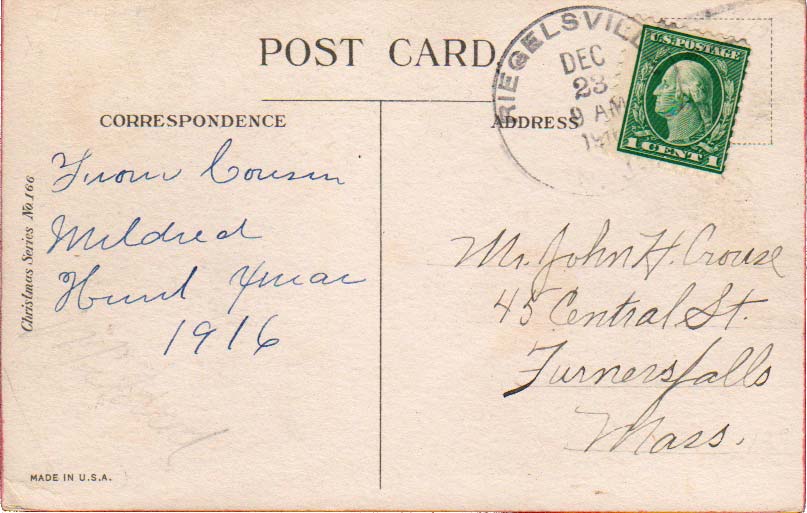 POST CARD
RIEGELSVILL
DEC
23
9 AM
U.S. POSTAGE
1 CENT 1
CORRESPONDENCE
ADDRESS
From Cousin
Mildred
Hunt Xmas
1916
Mr. John H. Crouse
45 Central St.
Turnersfalls
Mass.
Christmas Series No. 166
Mildred
MADE IN U.S.A.